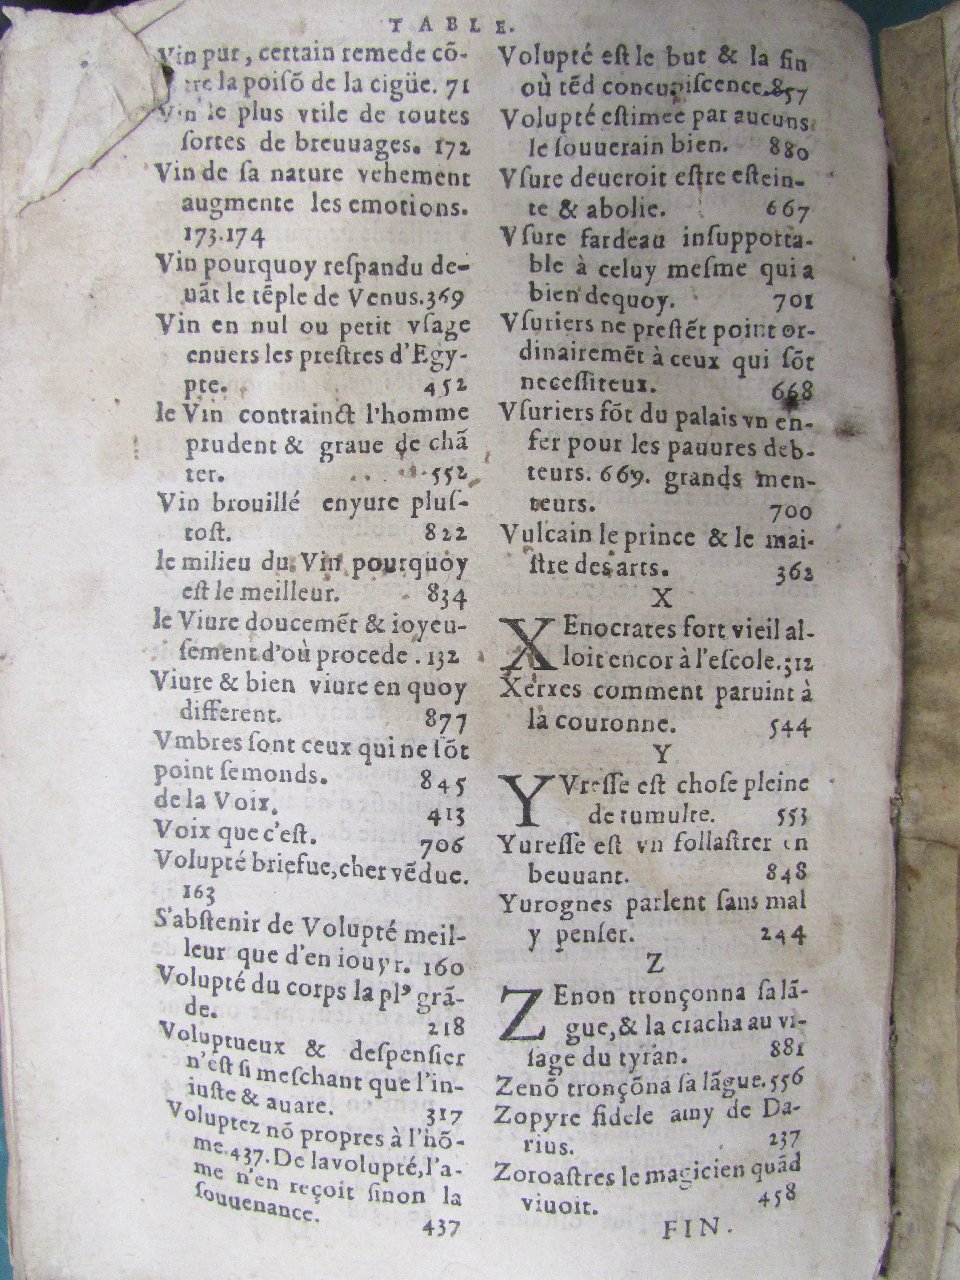 TABLE.
Vin pur, certain remede cõ-
tre la poisõ de la cigüe. 71
Vin le plus vtile de toutes
ſortes de breuuages. 172
Vin de ſa nature vehement
augmente les emotions.
173.174
Vin pourquoy reſpandu de-
uãt le tẽple de Venus. 369
Vin en nul ou petit vſage
enuers les preſtres d'Egy-
pte. 452
le Vin contrainct l'homme
prudent & graue de chã
ter. 552
Vin brouillé enyure pluſ-
toſt. 822
le milieu du Vin pourquoy
eſt le meilleur. 834
le Viure doucemẽt & ioyeu-
ſement d'où procede. 132
Viure & bien viure en quoy
different. 877
Vmbres ſont ceux qui ne ſõt
point ſemonds. 845
de la Voix. 413
Voix que c'eſt. 706
Volupté briefue, cher vẽdue.
163
S'abſtenir de Volupté meil-
leur que d'en iouyr. 160
Volupté du corps la pl⁹ grã-
de. 218
Voluptueux & deſpenſier
n'eſt ſi meſchant que l'in-
iuſte & auare. 317
Voluptez nõ propres à l'hõ-
me. 437. De la volupté, l'a-
me n'en reçoit ſinon la
ſouuenance. 437
Volupté eſt le but & la fin
où tẽd concupiſcence. 857
Volupté eſtimee par aucuns
le ſouuerain bien. 880
Vſure deueroit eſtre eſtein-
te & abolie. 667
Vſure fardeau inſupporta-
ble à celuy meſme qui a
bien dequoy. 701
Vſuriers ne preſtẽt point or-
dinairemẽt à ceux qui ſõt
neceſſiteux. 668
Vſuriers fõt du palais vn en-
fer pour les pauures deb-
teurs. 669. grands men-
teurs. 700
Vulcain le prince & le mai-
ſtre des arts. 362
X
XEnocrates fort vieil al-
loit encor à l'eſcole. 312
Xerxes comment paruint à
la couronne. 544
Y
YVreſſe eſt choſe pleine
de tumulte. 553
Yureſſe eſt vn follaſtrer en
beuuant. 848
Yurognes parlent ſans mal
y penſer. 244
Z
ZEnon tronçonna ſa lã-
gue, & la cracha au vi-
ſage du tyran. 881
Zenõ tronçõna ſa lãgue. 556
Zopyre fidele amy de Da-
rius. 237
Zoroaſtres le magicien quãd
viuoit. 458
FIN.